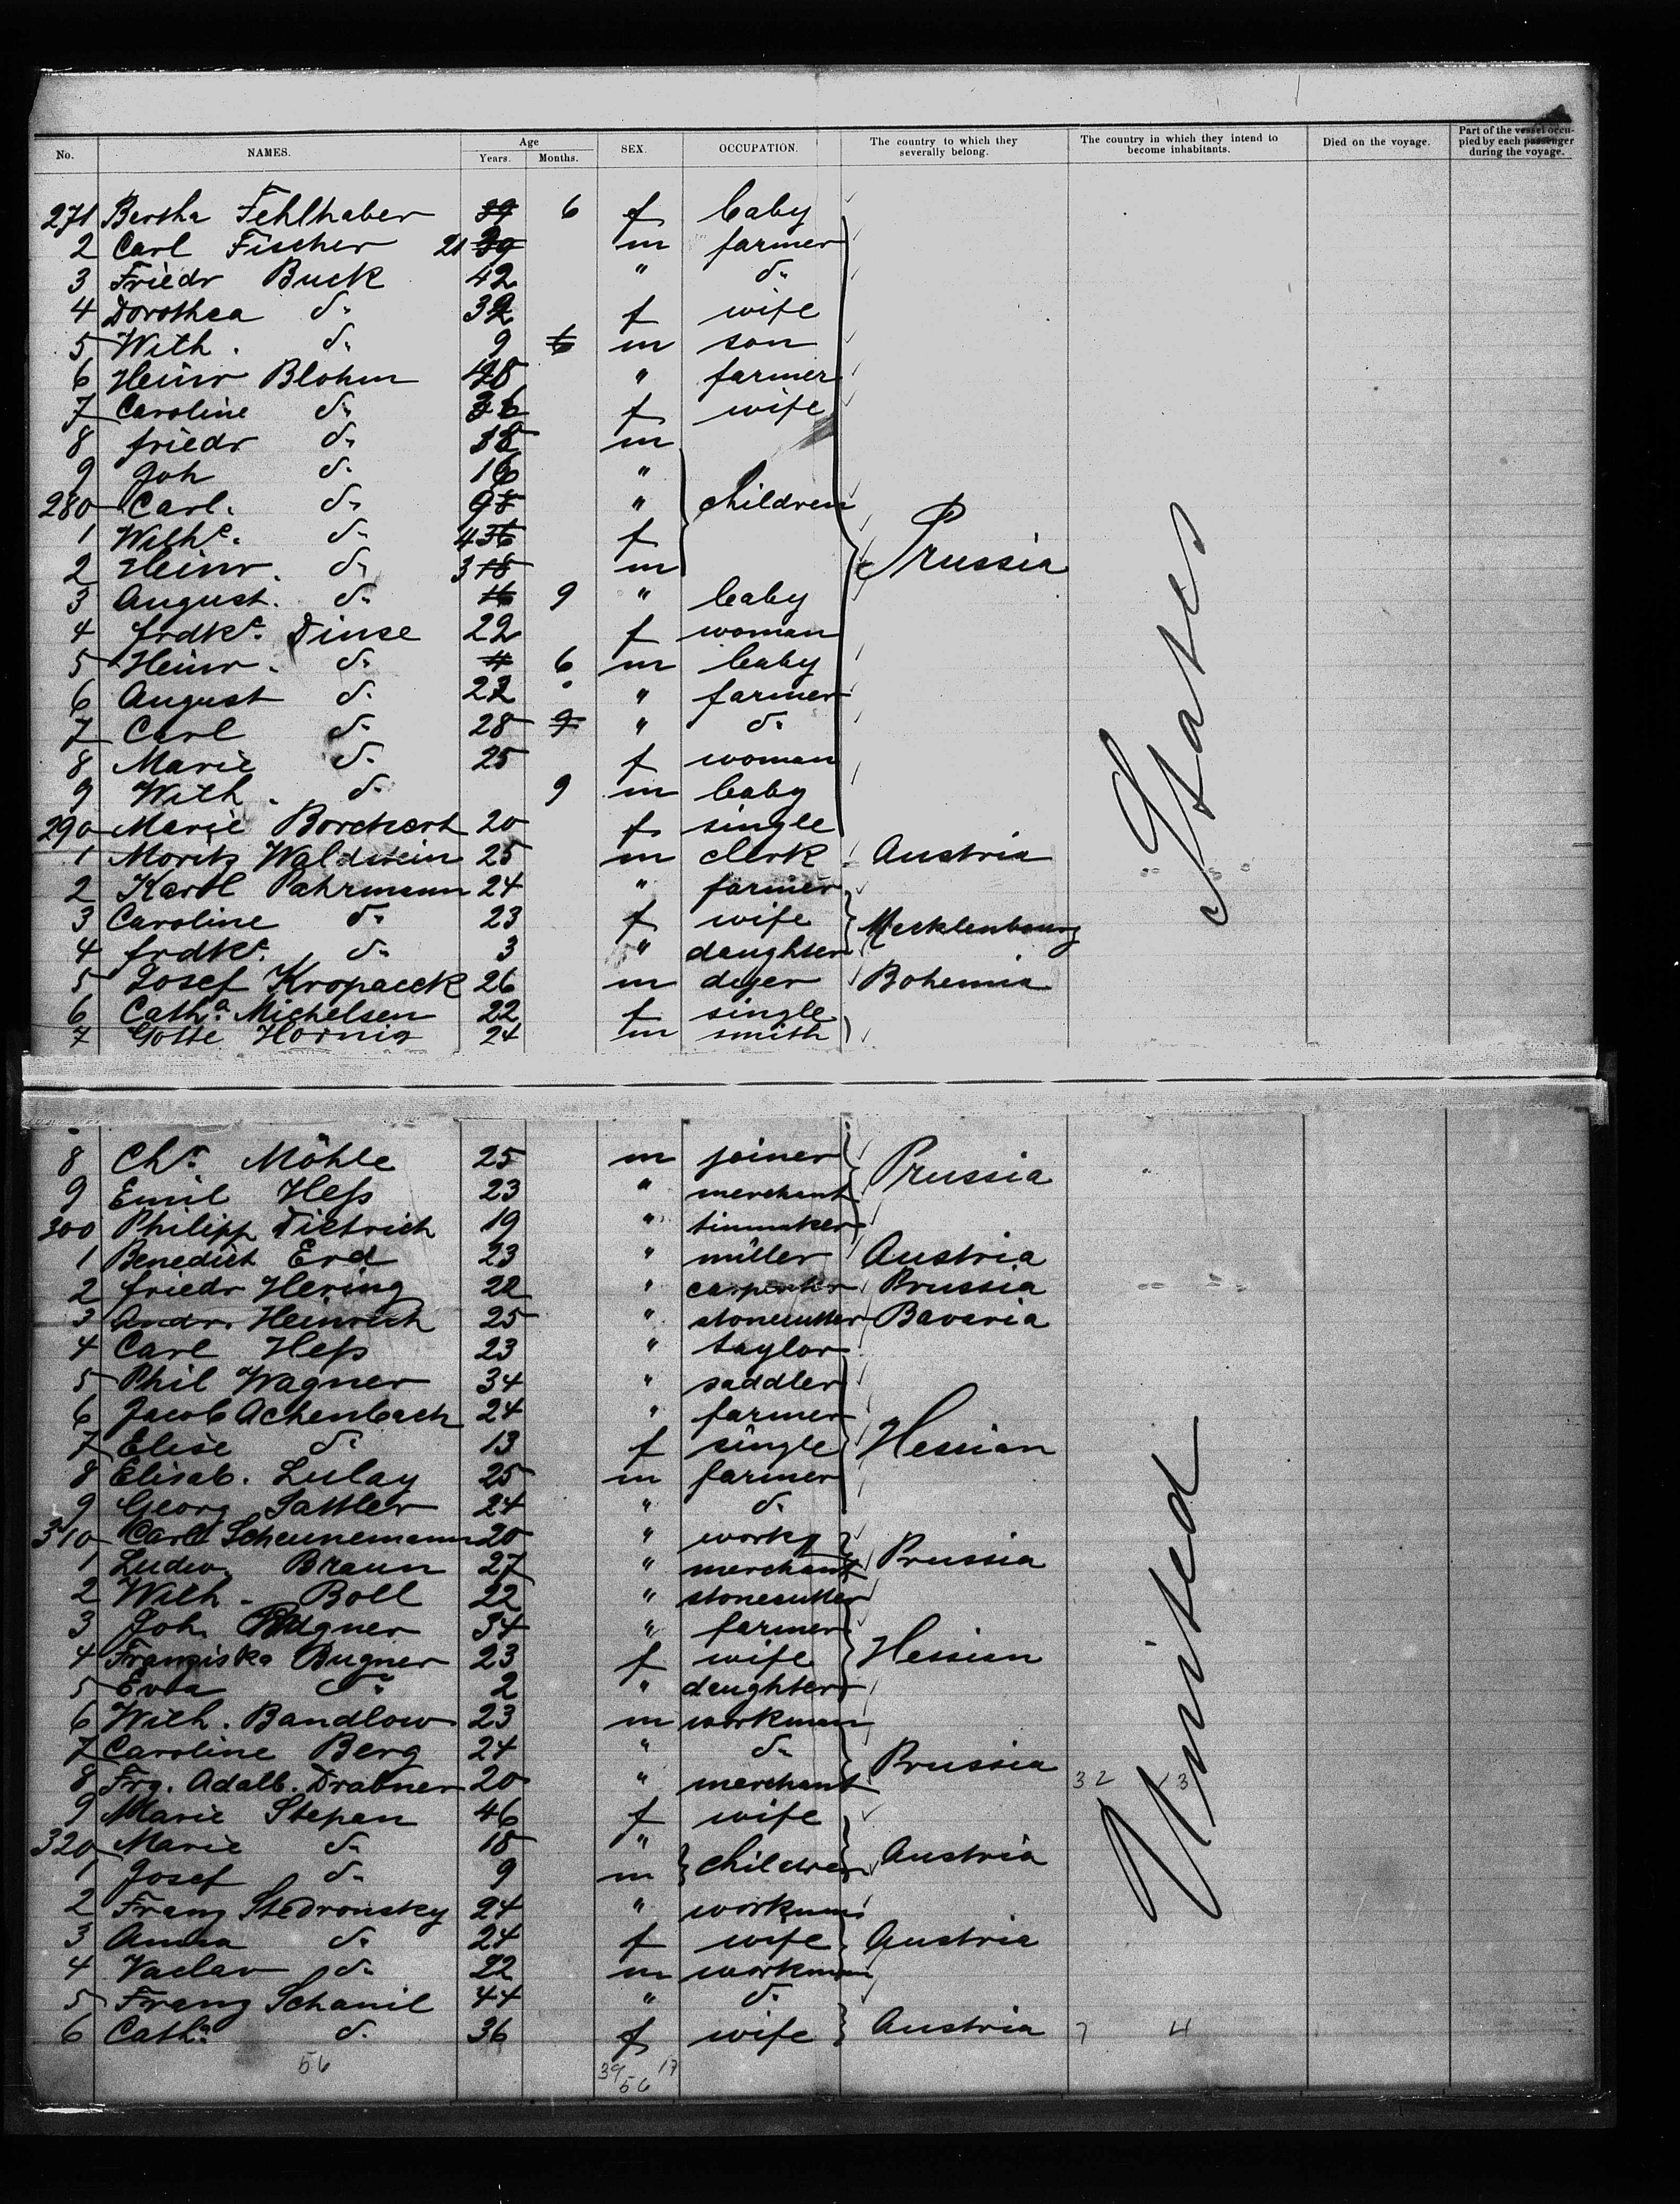 No. NAMES. Age Years. Months. SEX. OCCUPATION. The country to which they severally belong. The country in which they intend to become inhabitants. Died on the voyage. Part of the vessel occupied by each passenger during the voyage.
271 Bertha Fehlhaber 6 f baby
2 Carl Fischer 21 m farmer
3 Friedr Buck 42 " do
4 Dorothea do 32 f wife
5 Wilh. do 9 m son
6 Heinr Blohm 48 " farmer
7 Caroline do 36 f wife
8 friedr do 18 m
9 Joh do 16 "
280 Carl. do 9 " children
1 Wilhe. do 4 f
2 Heinr. do 3 m Prussia
3 August. do 9 " baby
4 frdke. Dinse 22 f woman
5 Heinr. do 6 m baby
6 August do 22 " farmer
7 Carl do 28 " do
8 Marie do 25 f woman
9 Wilh. do 9 m baby
290 Marie Borchert 20 f single
1 Moritz Waldstein 25 m clerk Austria
2 Karl Pahrmann 24 " farmer
3 Caroline do 23 f wife Mecklenbourg
4 frdke. do 3 " daughter
5 Josef Kropacek 26 m dyer Bohemia
6 Catha. Michelsen 22 f single
7 Gotte Hornig 24 m smith
8 Chr. Möhle 25 m joiner Prussia
9 Emil Heß 23 " merchant
300 Philipp Dietrich 19 " tinmaker
1 Benedict Erd 23 " miller Austria
2 friedr Hering 22 " carpenter Prussia
3 Andr. Heinrich 25 " stonecutter Bavaria
4 Carl Heß 23 " taylor
5 Phil Wagner 34 " saddler
6 Jacob Achenbach 24 " farmer
7 Elise do 13 f single Hessian
8 Elisab. Lulay 25 m farmer
9 Georg Sattler 24 " do
310 Carl Scheunemann 20 " workg
1 Ludw. Braun 27 " merchant Prussia
2 Wilh. Boll 22 " stonecutter
3 Joh. Bugner 34 " farmer
4 Franziska Bugner 23 f wife Hessian
5 Eva do 2 " daughter
6 Wilh. Bandlow 23 m workman
7 Caroline Berg 24 " do Prussia
8 Frz. Adalb. Drabner 20 " merchant 32 / 3
9 Marie Stepan 46 f wife
320 Marie do 18 "
1 Josef do 9 m children Austria
2 Franz Stedronsky 24 " workman
3 Anna do 24 f wife Austria
4 Vaclav do 22 m workman
5 Franz Schanil 44 " do
6 Catha. do 36 f wife Austria 7 4
56 39 17
56
United States